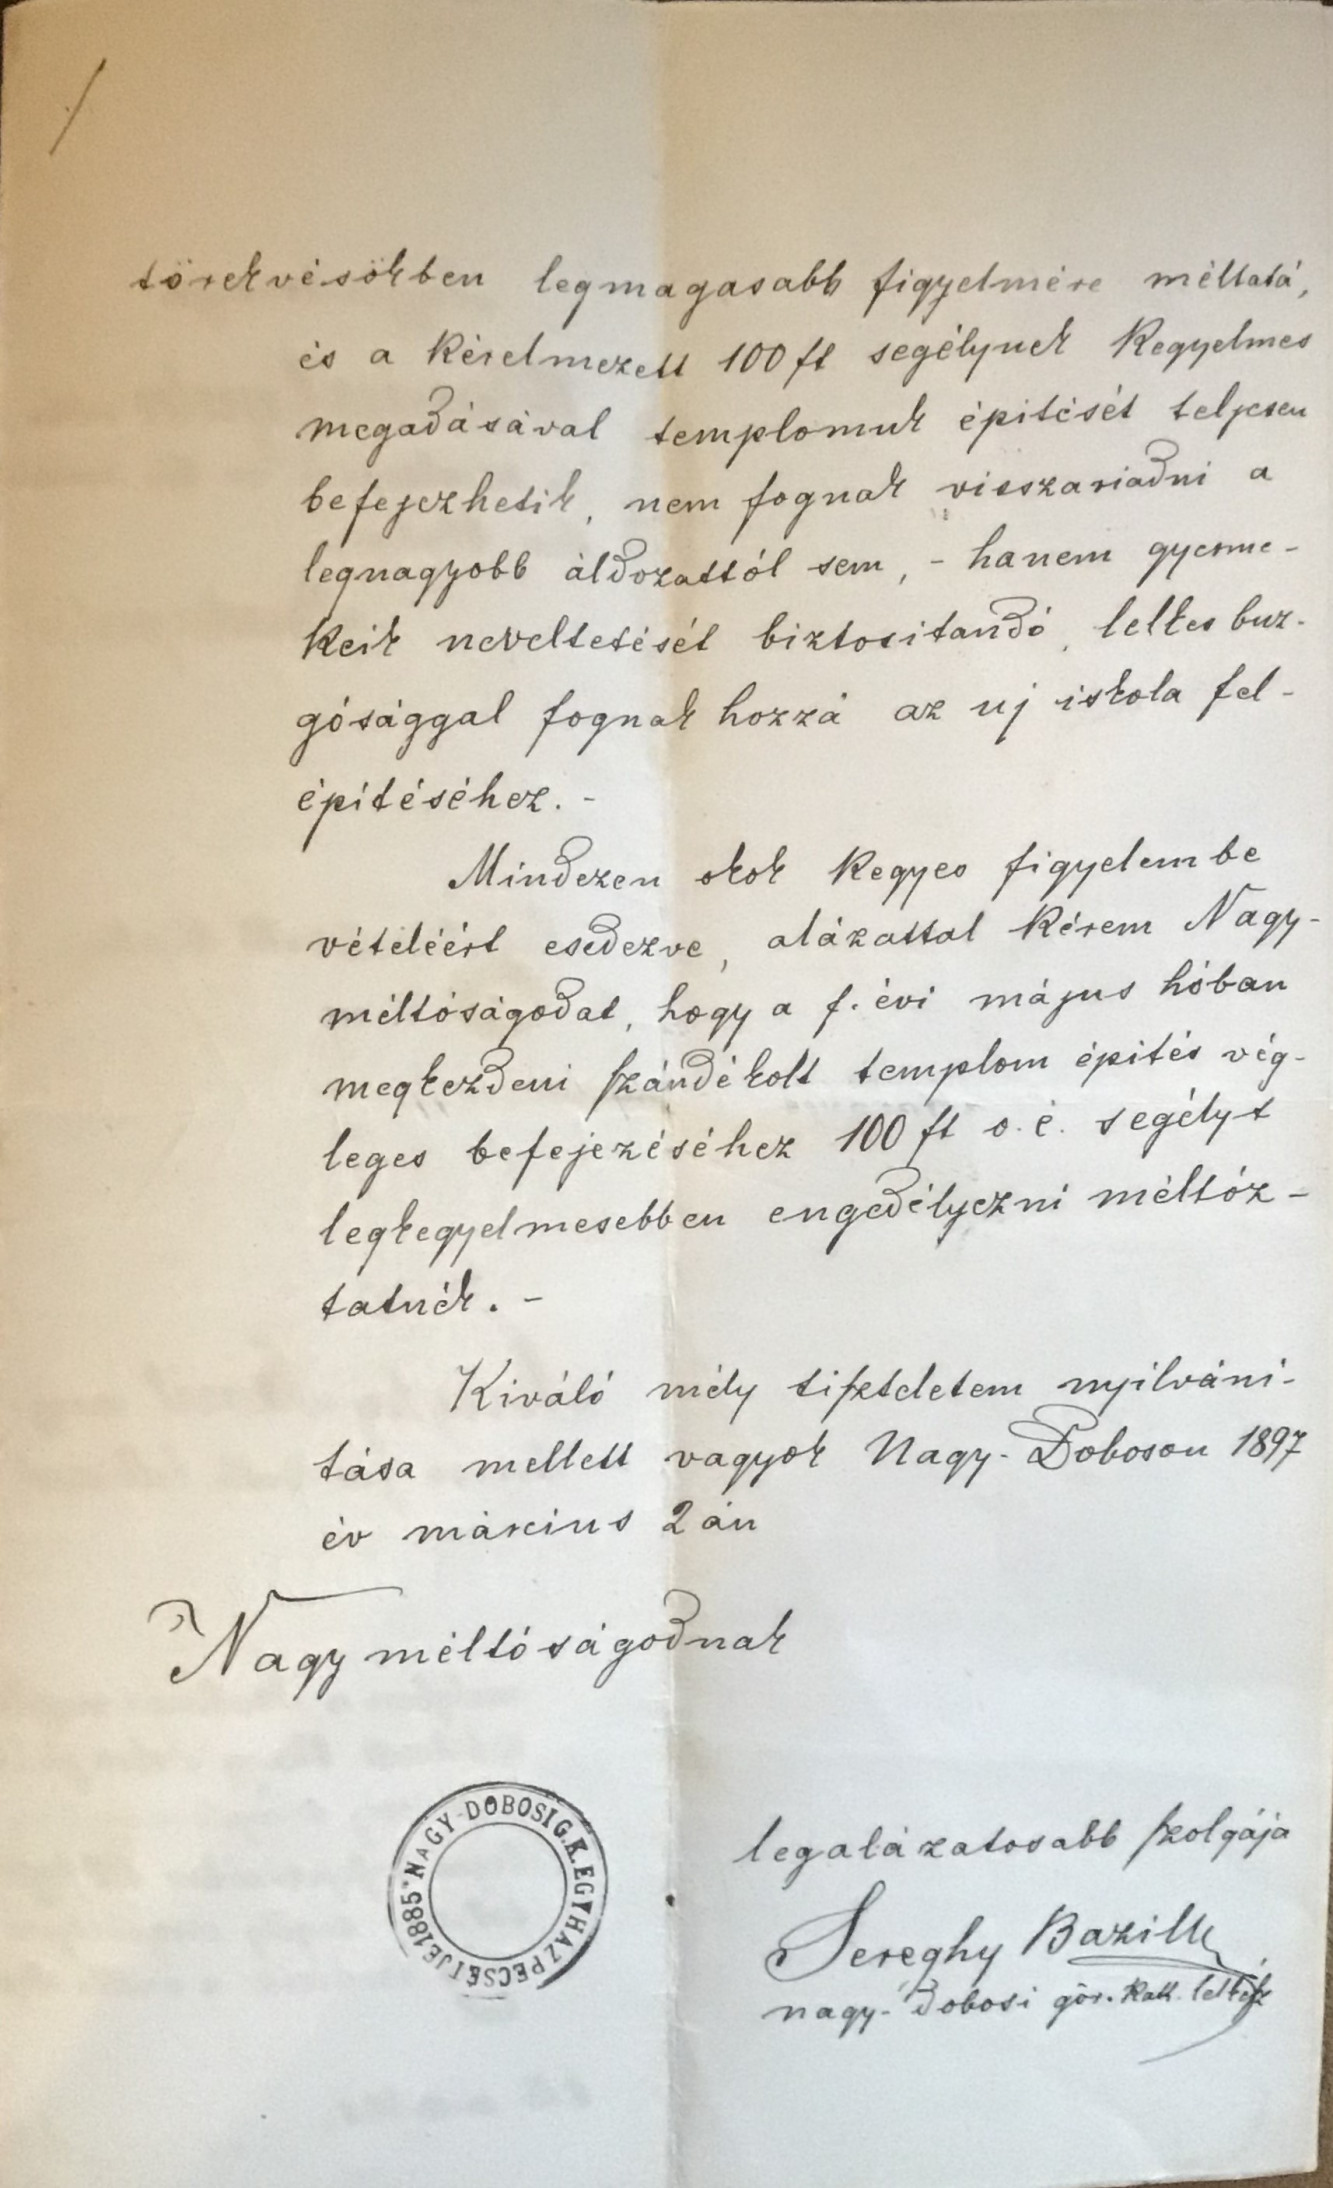 törekvésökben legmagasabb figyelmére méltatá,
és a kérelmezett 100 ft segélynek kegyelmes
megadásával templomuk épitését teljesen
befejezhetik, nem fognak visszariadni a
legnagyobb áldozattól sem, - hanem gyerme-
keik neveltetését biztositandó, lelkes buz-
gósággal fognak hozzá az uj iskola fel-
épitéséhez. -
Mindezen okok kegyes figyelembe
vételéért esedezve, alázattal kérem Nagy-
méltóságodat, hogy a f. évi május hóban
megkezdeni szándékolt templom épités vég-
leges befejezéséhez 100 ft o. é. segélyt
legkegyelmesebben engedélyezni méltóz-
tatnék. -
Kiváló mély tiszteletem nyilváni-
tása mellett vagyok Nagy-Doboson 1897
év március 2 án
Nagy méltóságodnak
NAGY-DOBOSI G.K. EGYHÁZ PECSÉTJE 1885*
legalázatosabb szolgája
Sereghy Bazill
nagy-dobosi gör. kath. lelkész